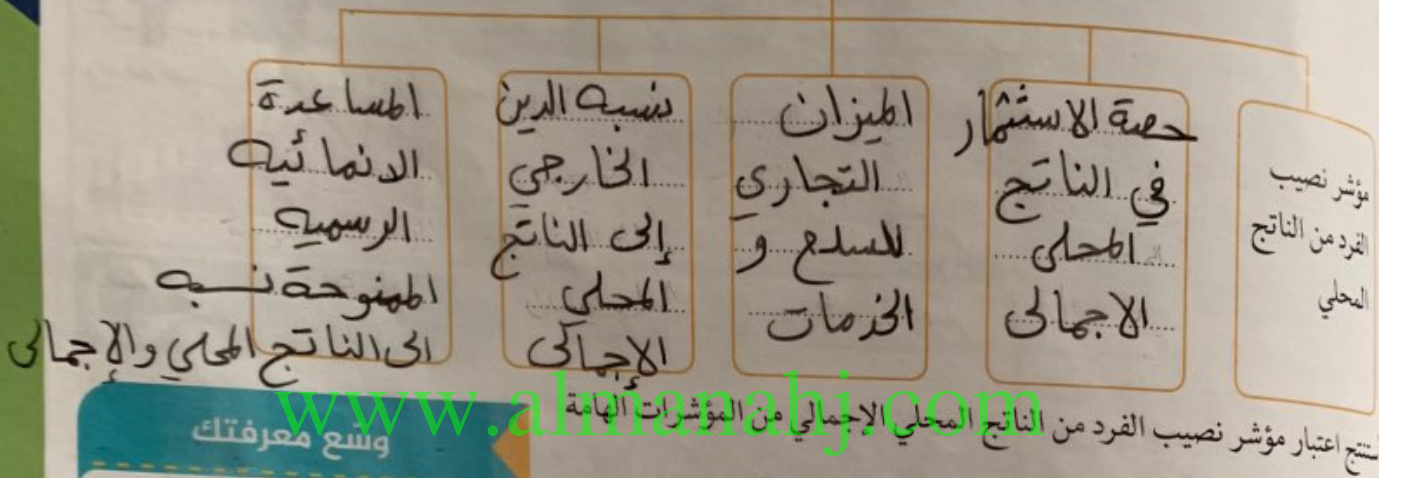 مؤشر نصيب
الفرد من الناتج
المحلي
حصة الاستثمار
في الناتج
المحلى
الاجمالى
الميزان
التجاري
للسلع و
الخدمات
نسبه الدين
الخارجي
إلى الناتج
المحلي
الإجمالى
المساعدة
الانمائيه
الرسميه
الممنوحة نسبه
الى الناتج المحلي والإجمالى
ستنتج اعتبار مؤشر نصيب الفرد من الناتج المحلي الإجمالي من المؤشرات الهامة
وسّع معرفتك
www.almanahj.com